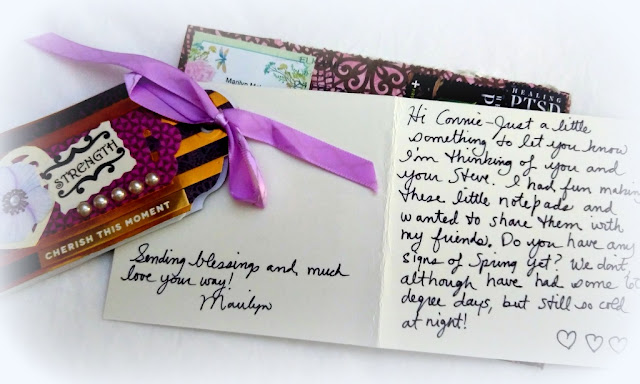 Marilyn M
HEALING
PTSD
STRENGTH
CHERISH THIS MOMENT
Sending blessings and much
love your way!
Marilyn
Hi Connie - Just a little
something to let you know
I'm thinking of you and
your Steve. I had fun making
these little notepads and
wanted to share them with
my friends. Do you have any
signs of Spring yet? We don't,
although have had some
degree days, but still so cold
at night!